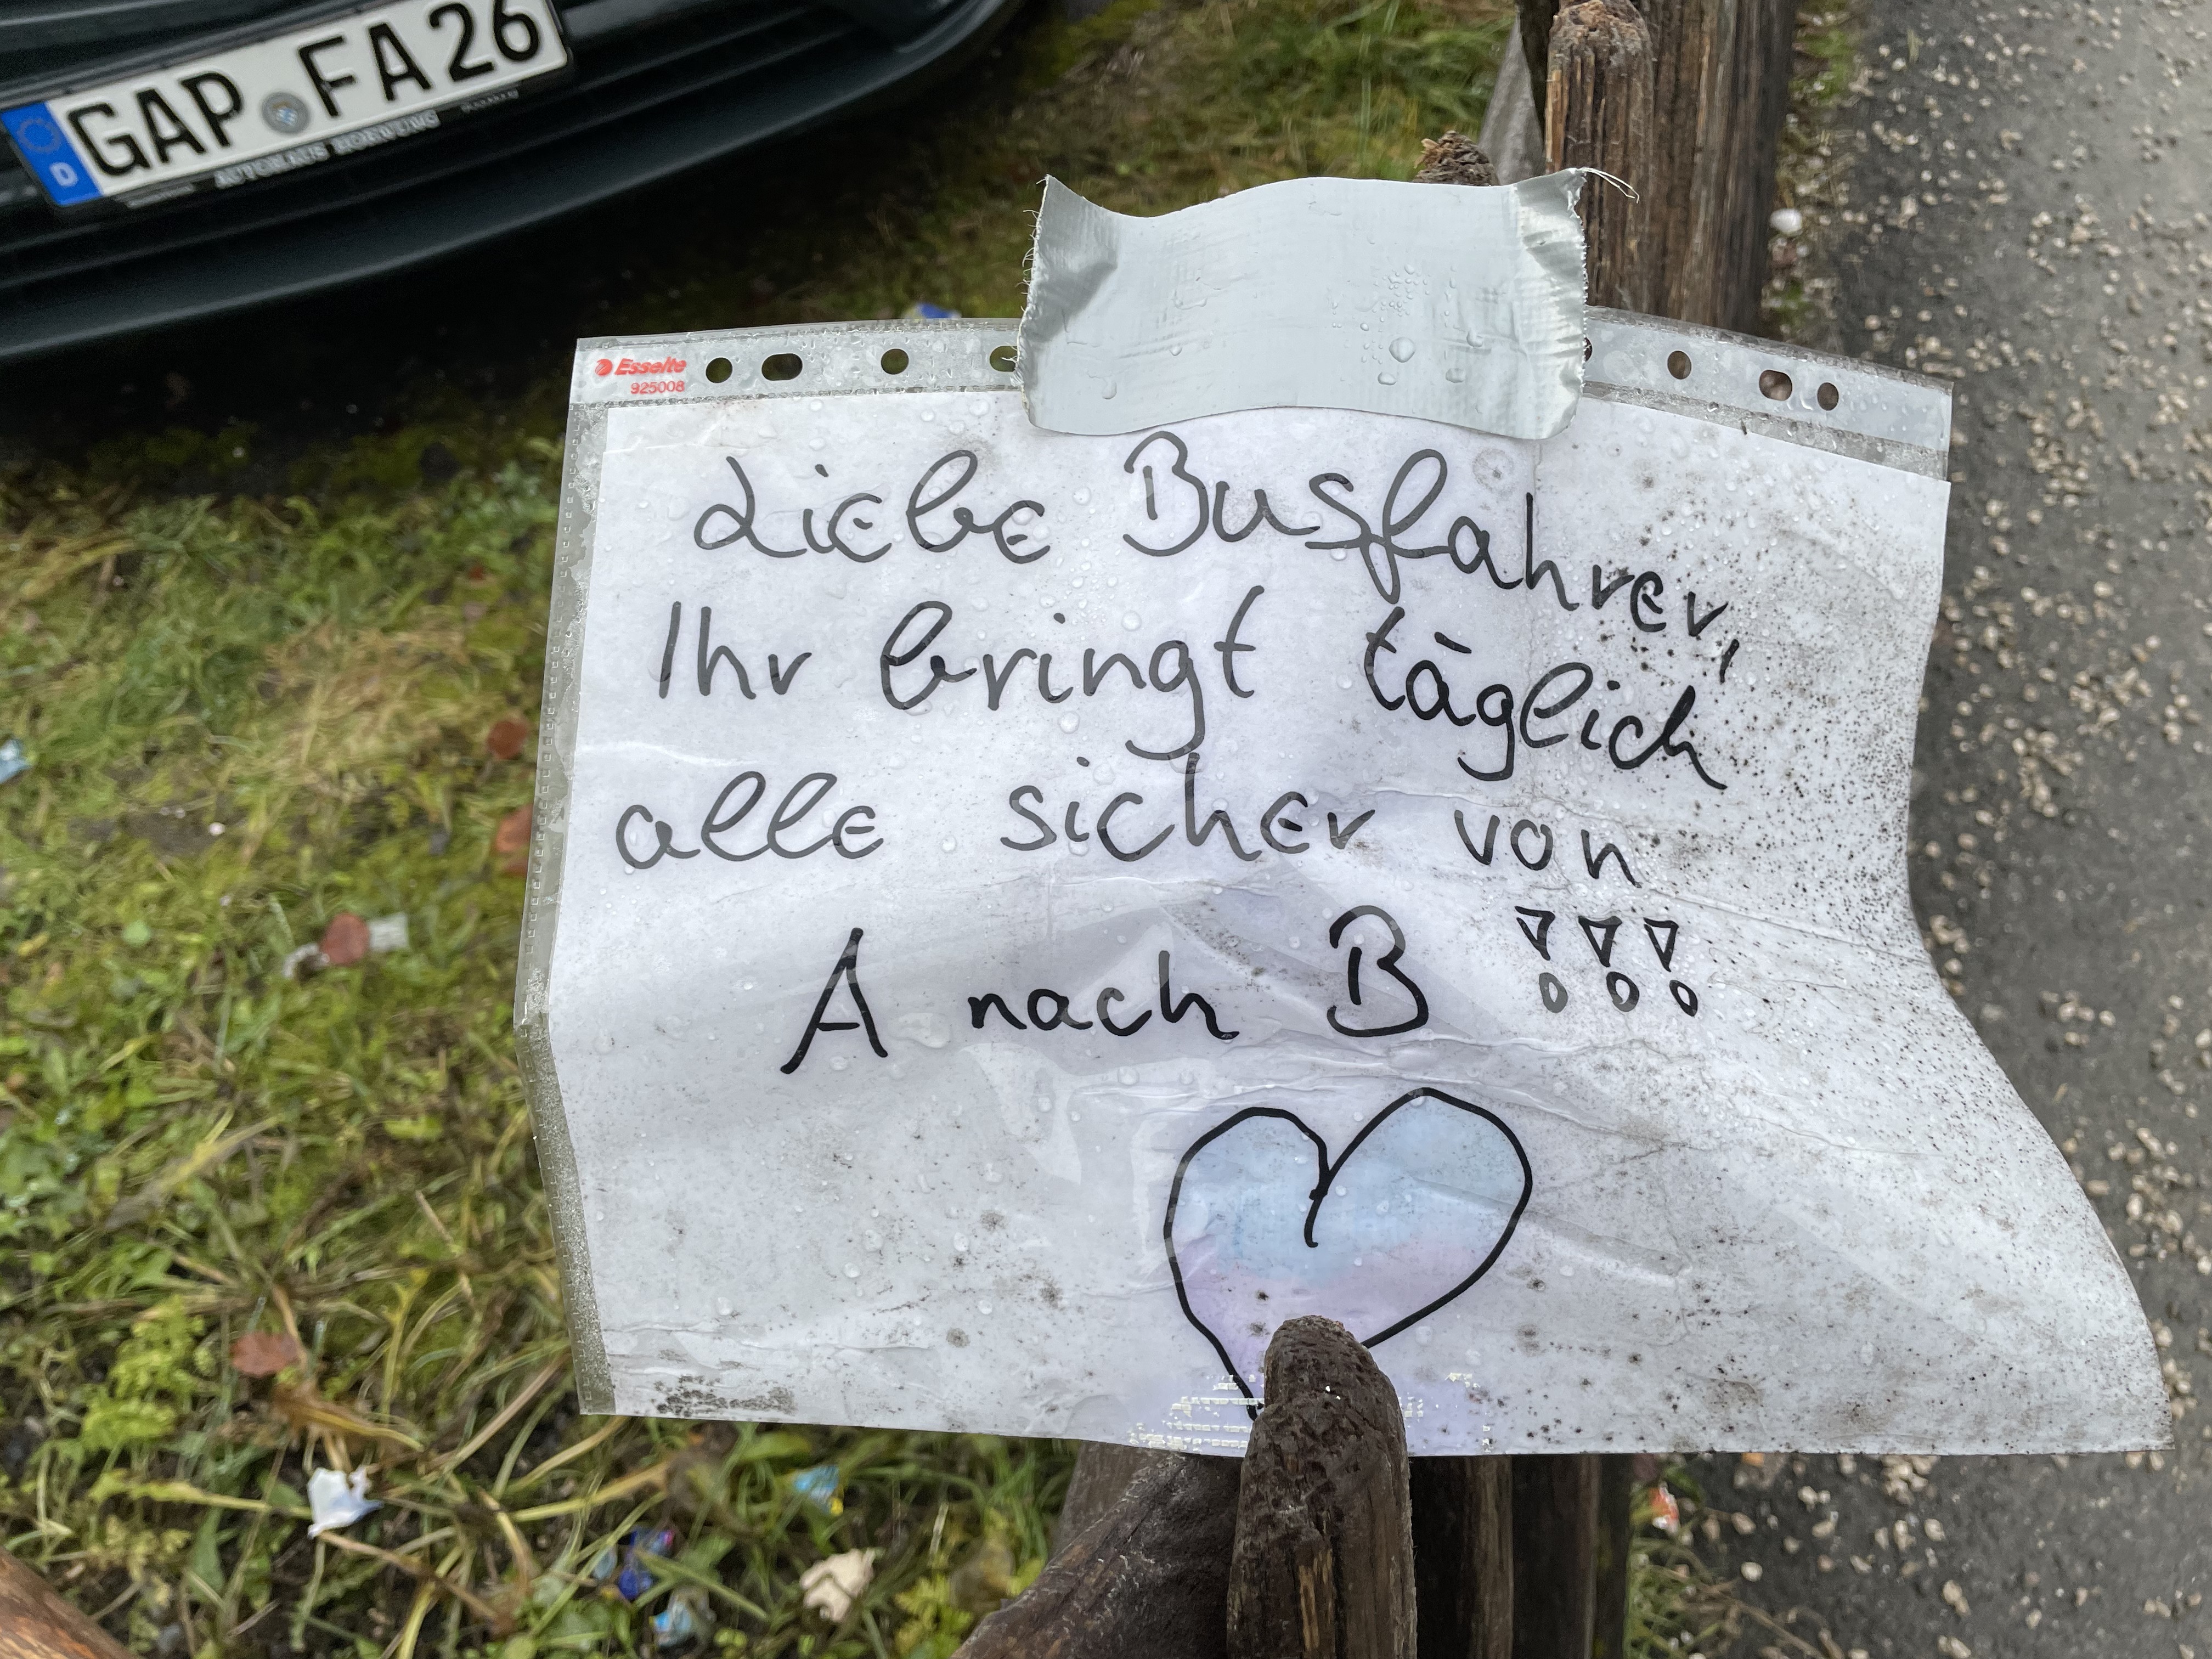 GAP FA 26
D
Esselte
925008
Liebe Busfahrer,
Ihr bringt täglich
alle sicher von
A nach B !!!